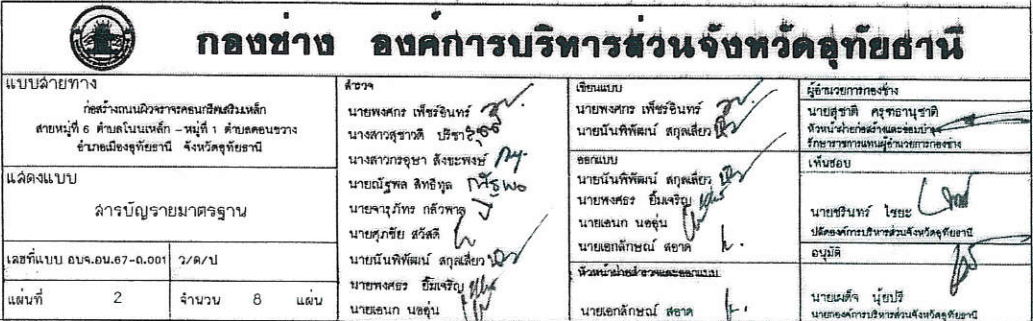 กองช่าง องค์การบริหารส่วนจังหวัดอุทัยธานี
แบบสายทาง
ก่อสร้างถนนผิวจราจรคอนกรีตเสริมเหล็ก
สายหมู่ที่ 6 ตำบลโนนเหล็ก - หมู่ที่ 1 ตำบลดอนขวาง
อำเภอเมืองอุทัยธานี จังหวัดอุทัยธานี
แสดงแบบ
สารบัญรายมาตรฐาน
เลขที่แบบ อบจ.อน.67-ถ.001 ว/ด/ป
แผ่นที่ 2 จำนวน 8 แผ่น
สำรวจ
นายพงศกร เพ็ชร์อินทร์
นางสาวสุชาวดี ปรีชา
นางสาวกรอุษา สังขะพงษ์
นายณัฐพล สิทธิทูล ณัฐพล
นายจารุภัทร กลัวพาล
นายศุภชัย สวัสดี
นายนันพิพัฒน์ สกุลเสี่ยว
นายพงศธร ยิ้มเจริญ
นายเอนก นออุ่น
เขียนแบบ
นายพงศกร เพ็ชร์อินทร์
นายนันพิพัฒน์ สกุลเสี่ยว
ออกแบบ
นายนันพิพัฒน์ สกุลเสี่ยว
นายพงศธร ยิ้มเจริญ
นายเอนก นออุ่น
นายเอกลักษณ์ สอาด
หัวหน้าฝ่ายสำรวจและออกแบบ
นายเอกลักษณ์ สอาด
ผู้อำนวยการกองช่าง
นายสุชาติ ครุฑธานุชาติ
หัวหน้าฝ่ายก่อสร้างและซ่อมบำรุง
รักษาราชการแทนผู้อำนวยการกองช่าง
เห็นชอบ
นายชรินทร์ ไชยะ
ปลัดองค์การบริหารส่วนจังหวัดอุทัยธานี
อนุมัติ
นายเผด็จ นุ้ยปรี
นายกองค์การบริหารส่วนจังหวัดอุทัยธานี